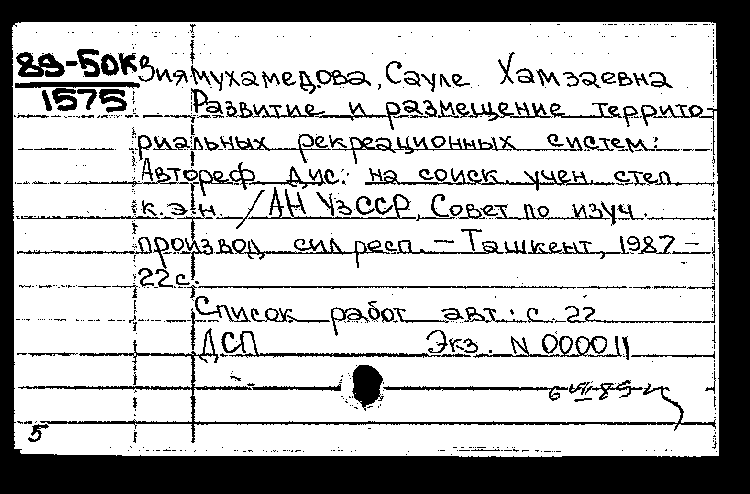 89-50К
1575
Зиямухамедова, Сауле Хамзаевна
Развитие и размещение террито-
риальных рекреационных систем:
Автореф дис. на соиск. учен. степ.
к.э.н. /АН УзССР, Совет по изуч.
производ. сил респ. – Ташкент, 1987 –
22с.
Список работ авт.: с. 22
ДСП Экз. N 000011
5